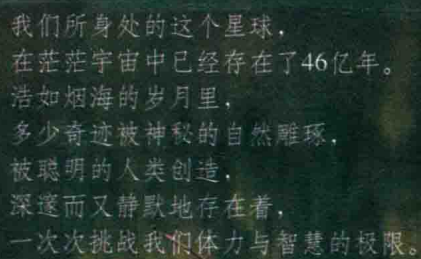 我们所身处的这个星球，
在茫茫宇宙中已经存在了46亿年。
浩如烟海的岁月里，
多少奇迹被神秘的自然雕琢，
被聪明的人类创造，
深邃而又静默地存在着，
一次次挑战我们体力与智慧的极限。